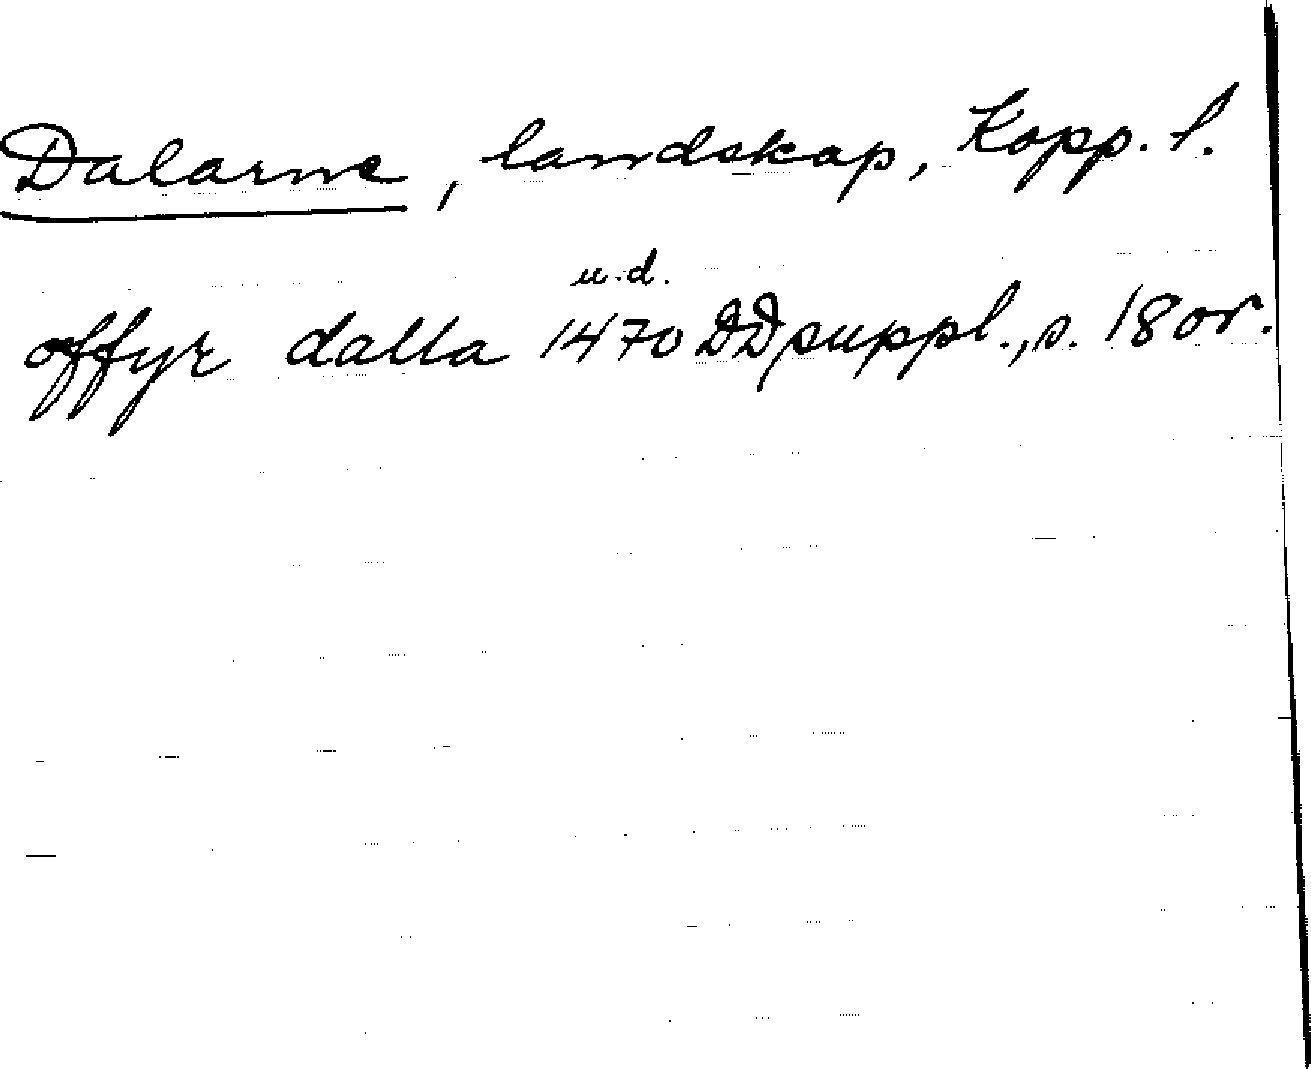 Dalarne, landskap, Kopp. l.
u.d.
offyr dalla 1470 DD suppl., s. 18 or.